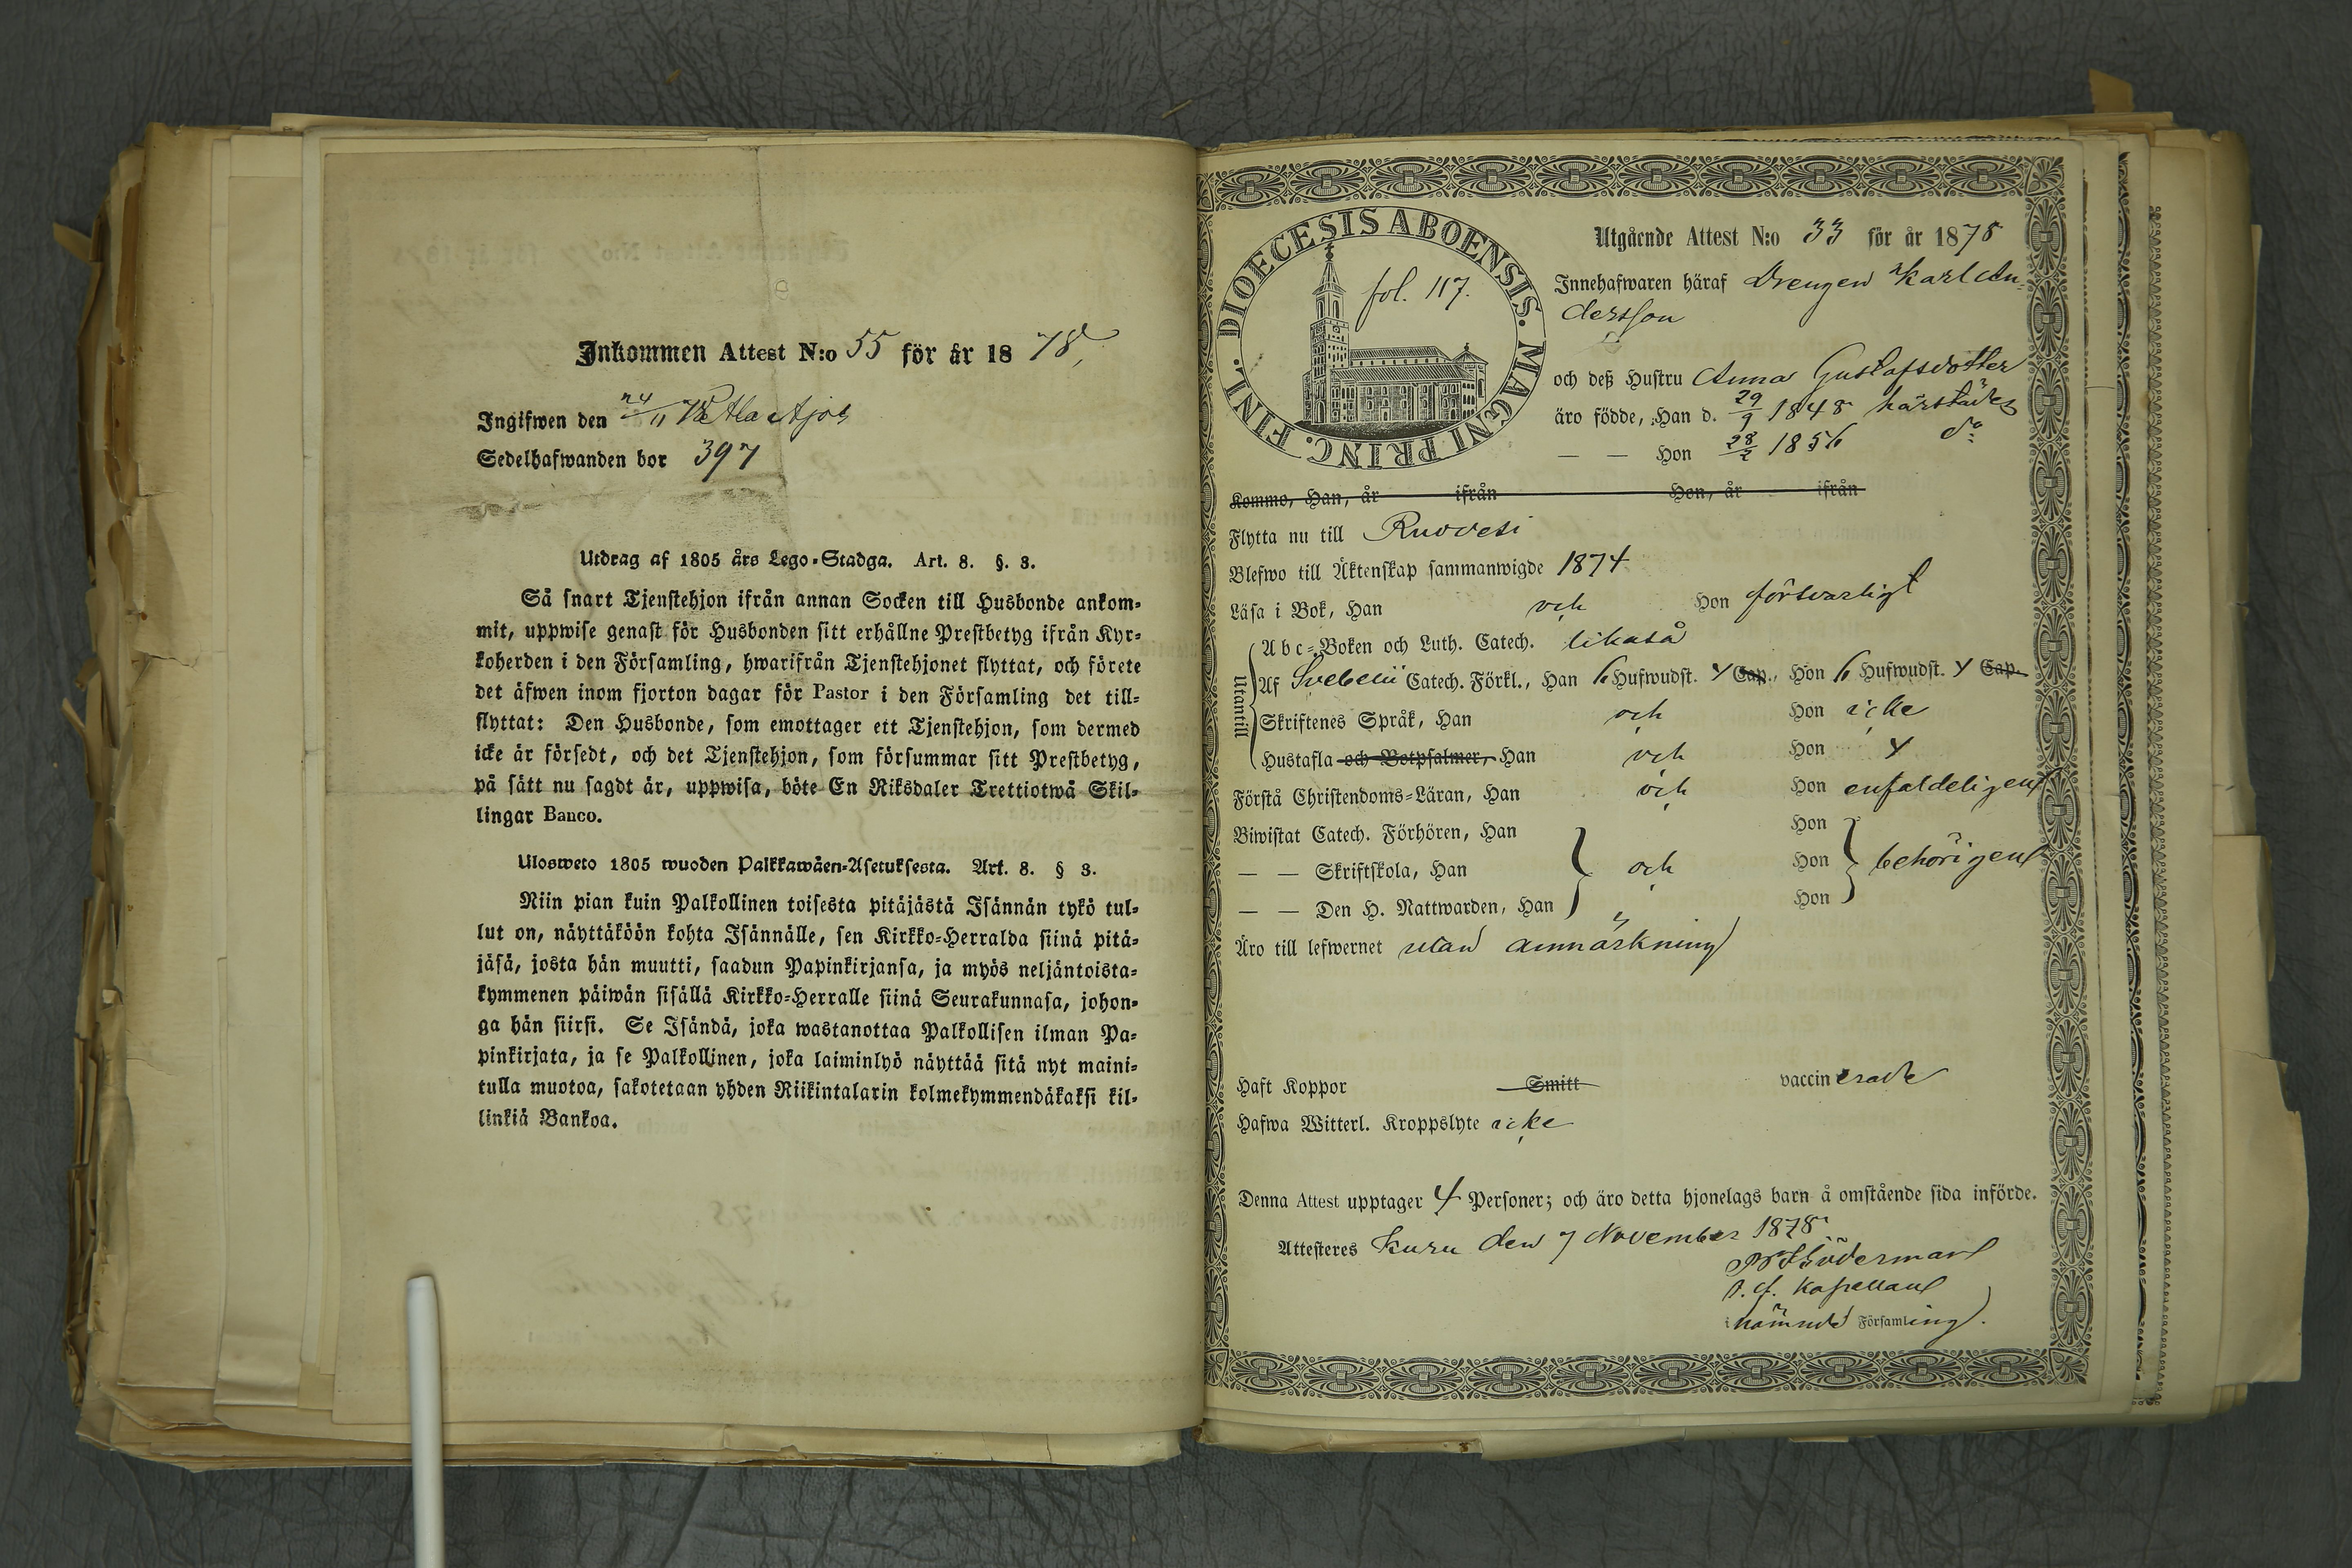 Inkommen Attest N:o 55 för år 1878,
Ingifwen den 24/11 78
Sedelhafwanden bor 397
Utdrag af 1805 års Lego-Stadga. Art. 8. §. 3.
Så snart Tjenstehjon ifrån annan Socken till Husbonde ankom-
mit, uppwise genast för Husbonden sitt erhållne Prestbetyg ifrån Kyr-
koherden i den Församling, hwarifrån Tjenstehjonet flyttat, och förete
det äfwen inom fjorton dagar för Pastor i den Församling det till-
flyttat: Den Husbonde, som emottager ett Tjenstehjon, som dermed
icke är försedt, och det Tjenstehjon, som försummar sitt Prestbetyg,
på sätt nu sagdt är, uppwisa, böte En Riksdaler Trettiotwå Skil-
lingar Banco.
Ulosweto 1805 wuoden Palkkawäen-Asetuksesta. Art. 8. § 3.
Niin pian kuin Palkollinen toisesta pitäjästä Isännän tykö tul-
lut on, näyttäköön kohta Isännälle, sen Kirkko-Herralda siinä pitä-
jäsä, josta hän muutti, saadun Papinkirjansa, ja myös neljäntoista-
kymmenen päiwän sisällä Kirkko-Herralle siinä Seurakunnasa, johon-
ga hän siirsi. Se Isändä, joka wastanottaa Palkollisen ilman Pa-
pinkirjata, ja se Palkollinen, joka laiminlyö näyttää sitä nyt maini-
tulla muotoa, sakotetaan yhden Riikintalarin kolmekymmendäkaksi kil-
linkiä Bankoa.
DIOECESIS ABOENSIS. MAGNI PRINC. FINL.
fol. 117.
Utgående Attest N:o 33 för år 1878
Innehafwaren häraf Drengen Karl An-
dersson
och deß Hustru Anna Gustafsdotter
äro födde, Han d. 29/9 1848 härstädes
— — Hon 28/2 1856 do
Komme, Han, år ifrån Hon, år ifrån
Flytta nu till Ruovesi
Blefwo till Äktenskap sammanwigde 1874
Läsa i Bok, Han och Hon försvarligt
Utantill
Abc-Boken och Luth. Catech. likaså
Af Svebelii Catech. Förkl., Han 6 Hufwudst. 4 Cap., Hon 6 Hufwudst. 4 Cap.
Skriftenes Språk, Han och Hon icke
Hustafla och Botpsalmer, Han och Hon 4
Förstå Christendoms-Läran, Han och Hon enfaldeligen
Biwistat Catech. Förhören, Han Hon
— — Skriftskola, Han och Hon behörigen
— — Den H. Nattwarden, Han Hon
Äro till lefwernet utan anmärkning
Haft Koppor Smitt vaccinerade
Hafwa Witterl. Kroppslyte icke
Denna Attest upptager 4 Personer; och äro detta hjonelags barn å omstående sida införde.
Attesteres Kuru den 7 November 1878
Söderman
v. d. Kapellan
i nämnde Församling.